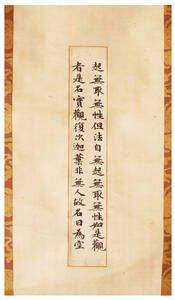 起無取無性但法自無起無取無性如是觀
者是名實觀復次迦葉非無人故名曰為空